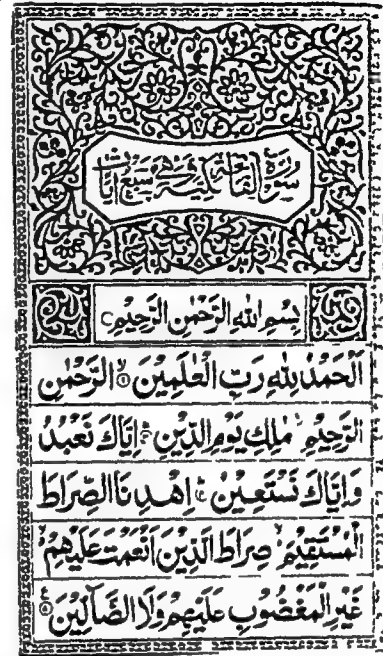 سورة الفاتحة مكية وهي سبع ايات
بِسْمِ اللهِ الرَّحْمٰنِ الرَّحِيْمِ
اَلْحَمْدُ لِلّٰهِ رَبِّ الْعٰلَمِيْنَ ۙ الرَّحْمٰنِ
الرَّحِيْمِ ۙ مٰلِكِ يَوْمِ الدِّيْنِ ؕ اِيَّاكَ نَعْبُدُ
وَاِيَّاكَ نَسْتَعِيْنُ ؕ اِهْدِنَا الصِّرَاطَ
الْمُسْتَقِيْمَ ۙ صِرَاطَ الَّذِيْنَ اَنْعَمْتَ عَلَيْهِمْ ۙ
غَيْرِ الْمَغْضُوْبِ عَلَيْهِمْ وَلَا الضَّآلِّيْنَ